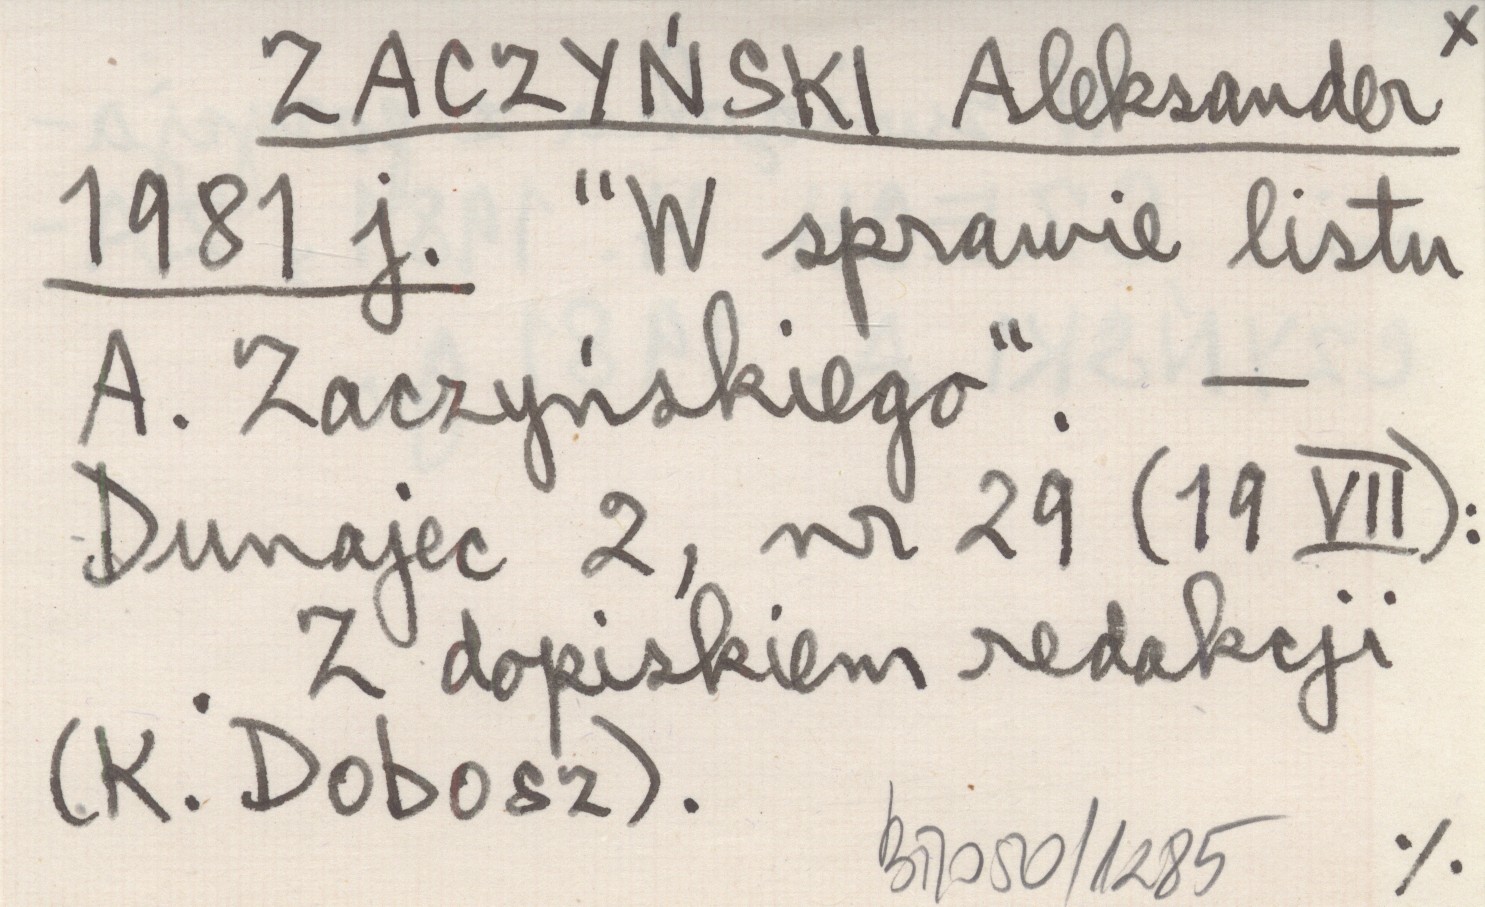 ZACZYŃSKI Aleksander x
1981 j. "W sprawie listu
A. Zaczyńskiego". —
Dunajec 2, nr 29 (19 VII):
. Z dopiskiem redakcji
(K. Dobosz).
/1285 ./.